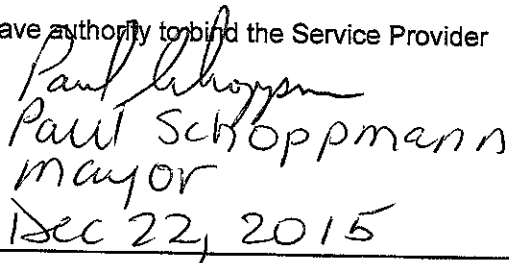 ave authority to bind the Service Provider
Paul Schoppmann
Paul Schoppmann
mayor
Dec 22, 2015